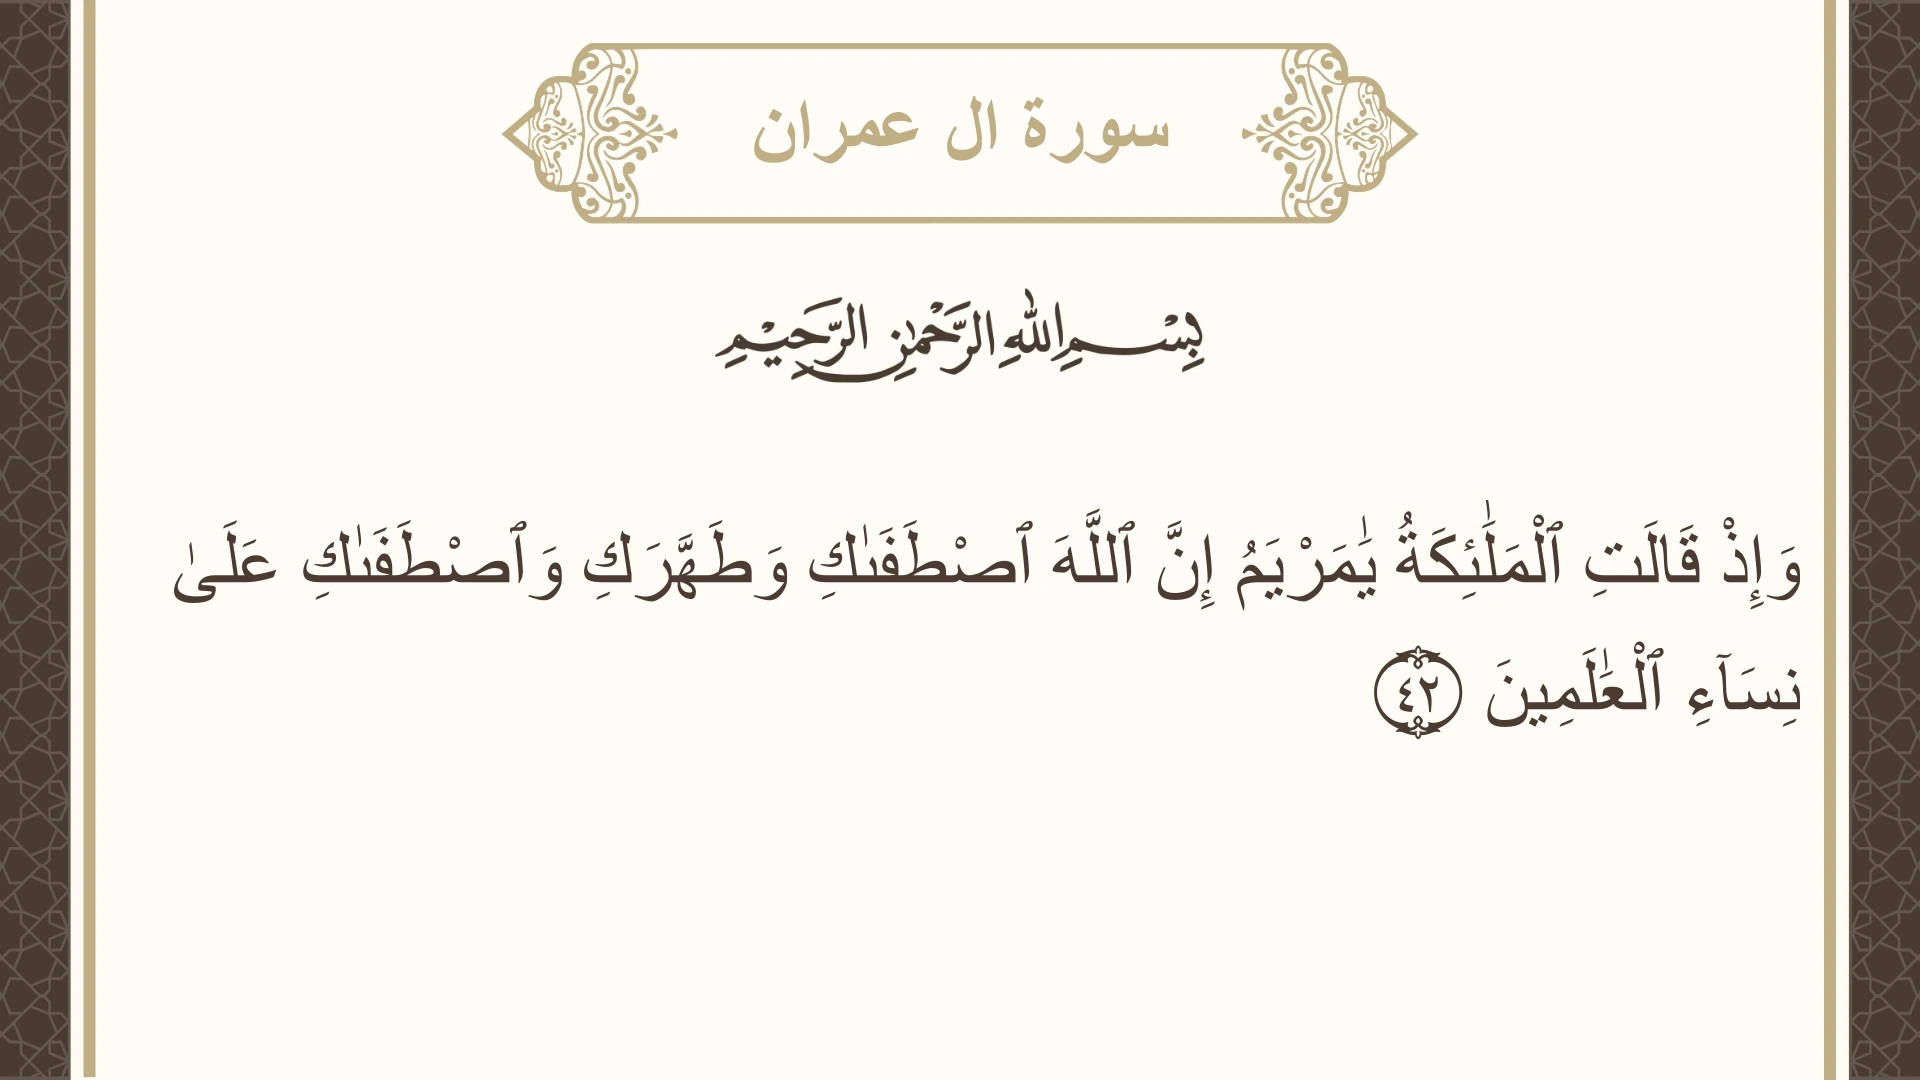 سورة ال عمران
بِسْمِ اللهِ الرَّحْمٰنِ الرَّحِيْمِ
وَإِذْ قَالَتِ ٱلْمَلَٰٓئِكَةُ يَٰمَرْيَمُ إِنَّ ٱللَّهَ ٱصْطَفَىٰكِ وَطَهَّرَكِ وَٱصْطَفَىٰكِ عَلَىٰ
نِسَآءِ ٱلْعَٰلَمِينَ ٤٢